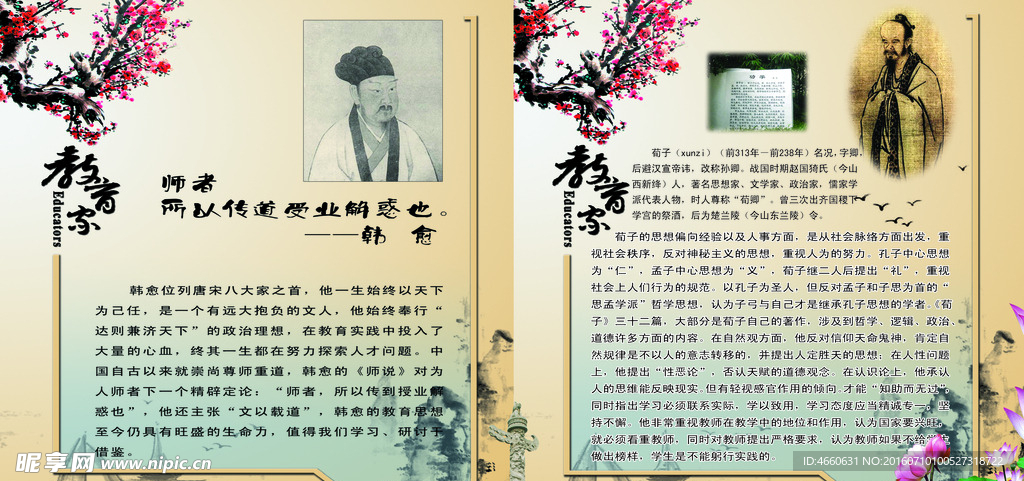 教育家
Educators
师者
所以传道受业解惑也。
——韩 愈
韩愈位列唐宋八大家之首，他一生始终以天下
为己任，是一个有远大抱负的文人，他始终奉行“
达则兼济天下”的政治理想，在教育实践中投入了
大量的心血，终其一生都在努力探索人才问题。中
国自古以来就崇尚尊师重道，韩愈的《师说》对为
人师者下一个精辟定论：“师者，所以传到授业解
惑也”，他还主张“文以载道”，韩愈的教育思想
至今仍具有旺盛的生命力，值得我们学习、研讨于
借鉴。
昵享网 www.nipic.cn
教育家
Educators
劝学
荀子（xunzi）（前313年－前238年）名况，字卿，
后避汉宣帝讳，改称孙卿。战国时期赵国猗氏（今山
西新绛）人，著名思想家、文学家、政治家，儒家学
派代表人物，时人尊称“荀卿”。曾三次出齐国稷下
学宫的祭酒，后为楚兰陵（今山东兰陵）令。
荀子的思想偏向经验以及人事方面，是从社会脉络方面出发，重
视社会秩序，反对神秘主义的思想，重视人为的努力。孔子中心思想
为“仁”，孟子中心思想为“义”，荀子继二人后提出“礼”，重视
社会上人们行为的规范。以孔子为圣人，但反对孟子和子思为首的“
思孟学派”哲学思想，认为子弓与自己才是继承孔子思想的学者。《荀
子》三十二篇，大部分是荀子自己的著作，涉及到哲学、逻辑、政治、
道德许多方面的内容。在自然观方面，他反对信仰天命鬼神，肯定自
然规律是不以人的意志转移的，并提出人定胜天的思想；在人性问题
上，他提出“性恶论”，否认天赋的道德观念。在认识论上，他承认
人的思维能反映现实。但有轻视感官作用的倾向。才能“知助而无过”，
同时指出学习必须联系实际，学以致用，学习态度应当精诚专一，坚
持不懈。他非常重视教师在教学中的地位和作用，认为国家要兴旺，
就必须看重教师，同时对教师提出严格要求，认为教师如果不给学生
做出榜样，学生是不能躬行实践的。
ID:4660631 NO:20160710100527318722